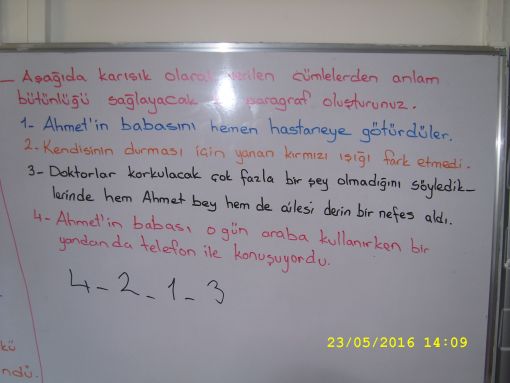 - Aşağıda karışık olarak verilen cümlelerden anlam
bütünlüğü sağlayacak paragraf oluşturunuz.
1- Ahmet'in babasını hemen hastaneye götürdüler.
2- Kendisinin durması için yanan kırmızı ışığı fark etmedi.
3- Doktorlar korkulacak çok fazla bir şey olmadığını söyledik-
lerinde hem Ahmet bey hem de ailesi derin bir nefes aldı.
4- Ahmet'in babası o gün araba kullanırken bir
yandan da telefon ile konuşuyordu.
4-2-1-3
23/05/2016 14:09